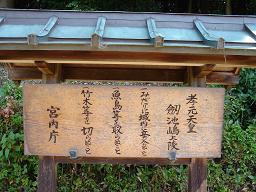 孝元天皇
劔池嶋上陵
一、みだりに域内に立入らぬこと
一、魚鳥等を取らぬこと
一、竹木等を切らぬこと
宮内庁